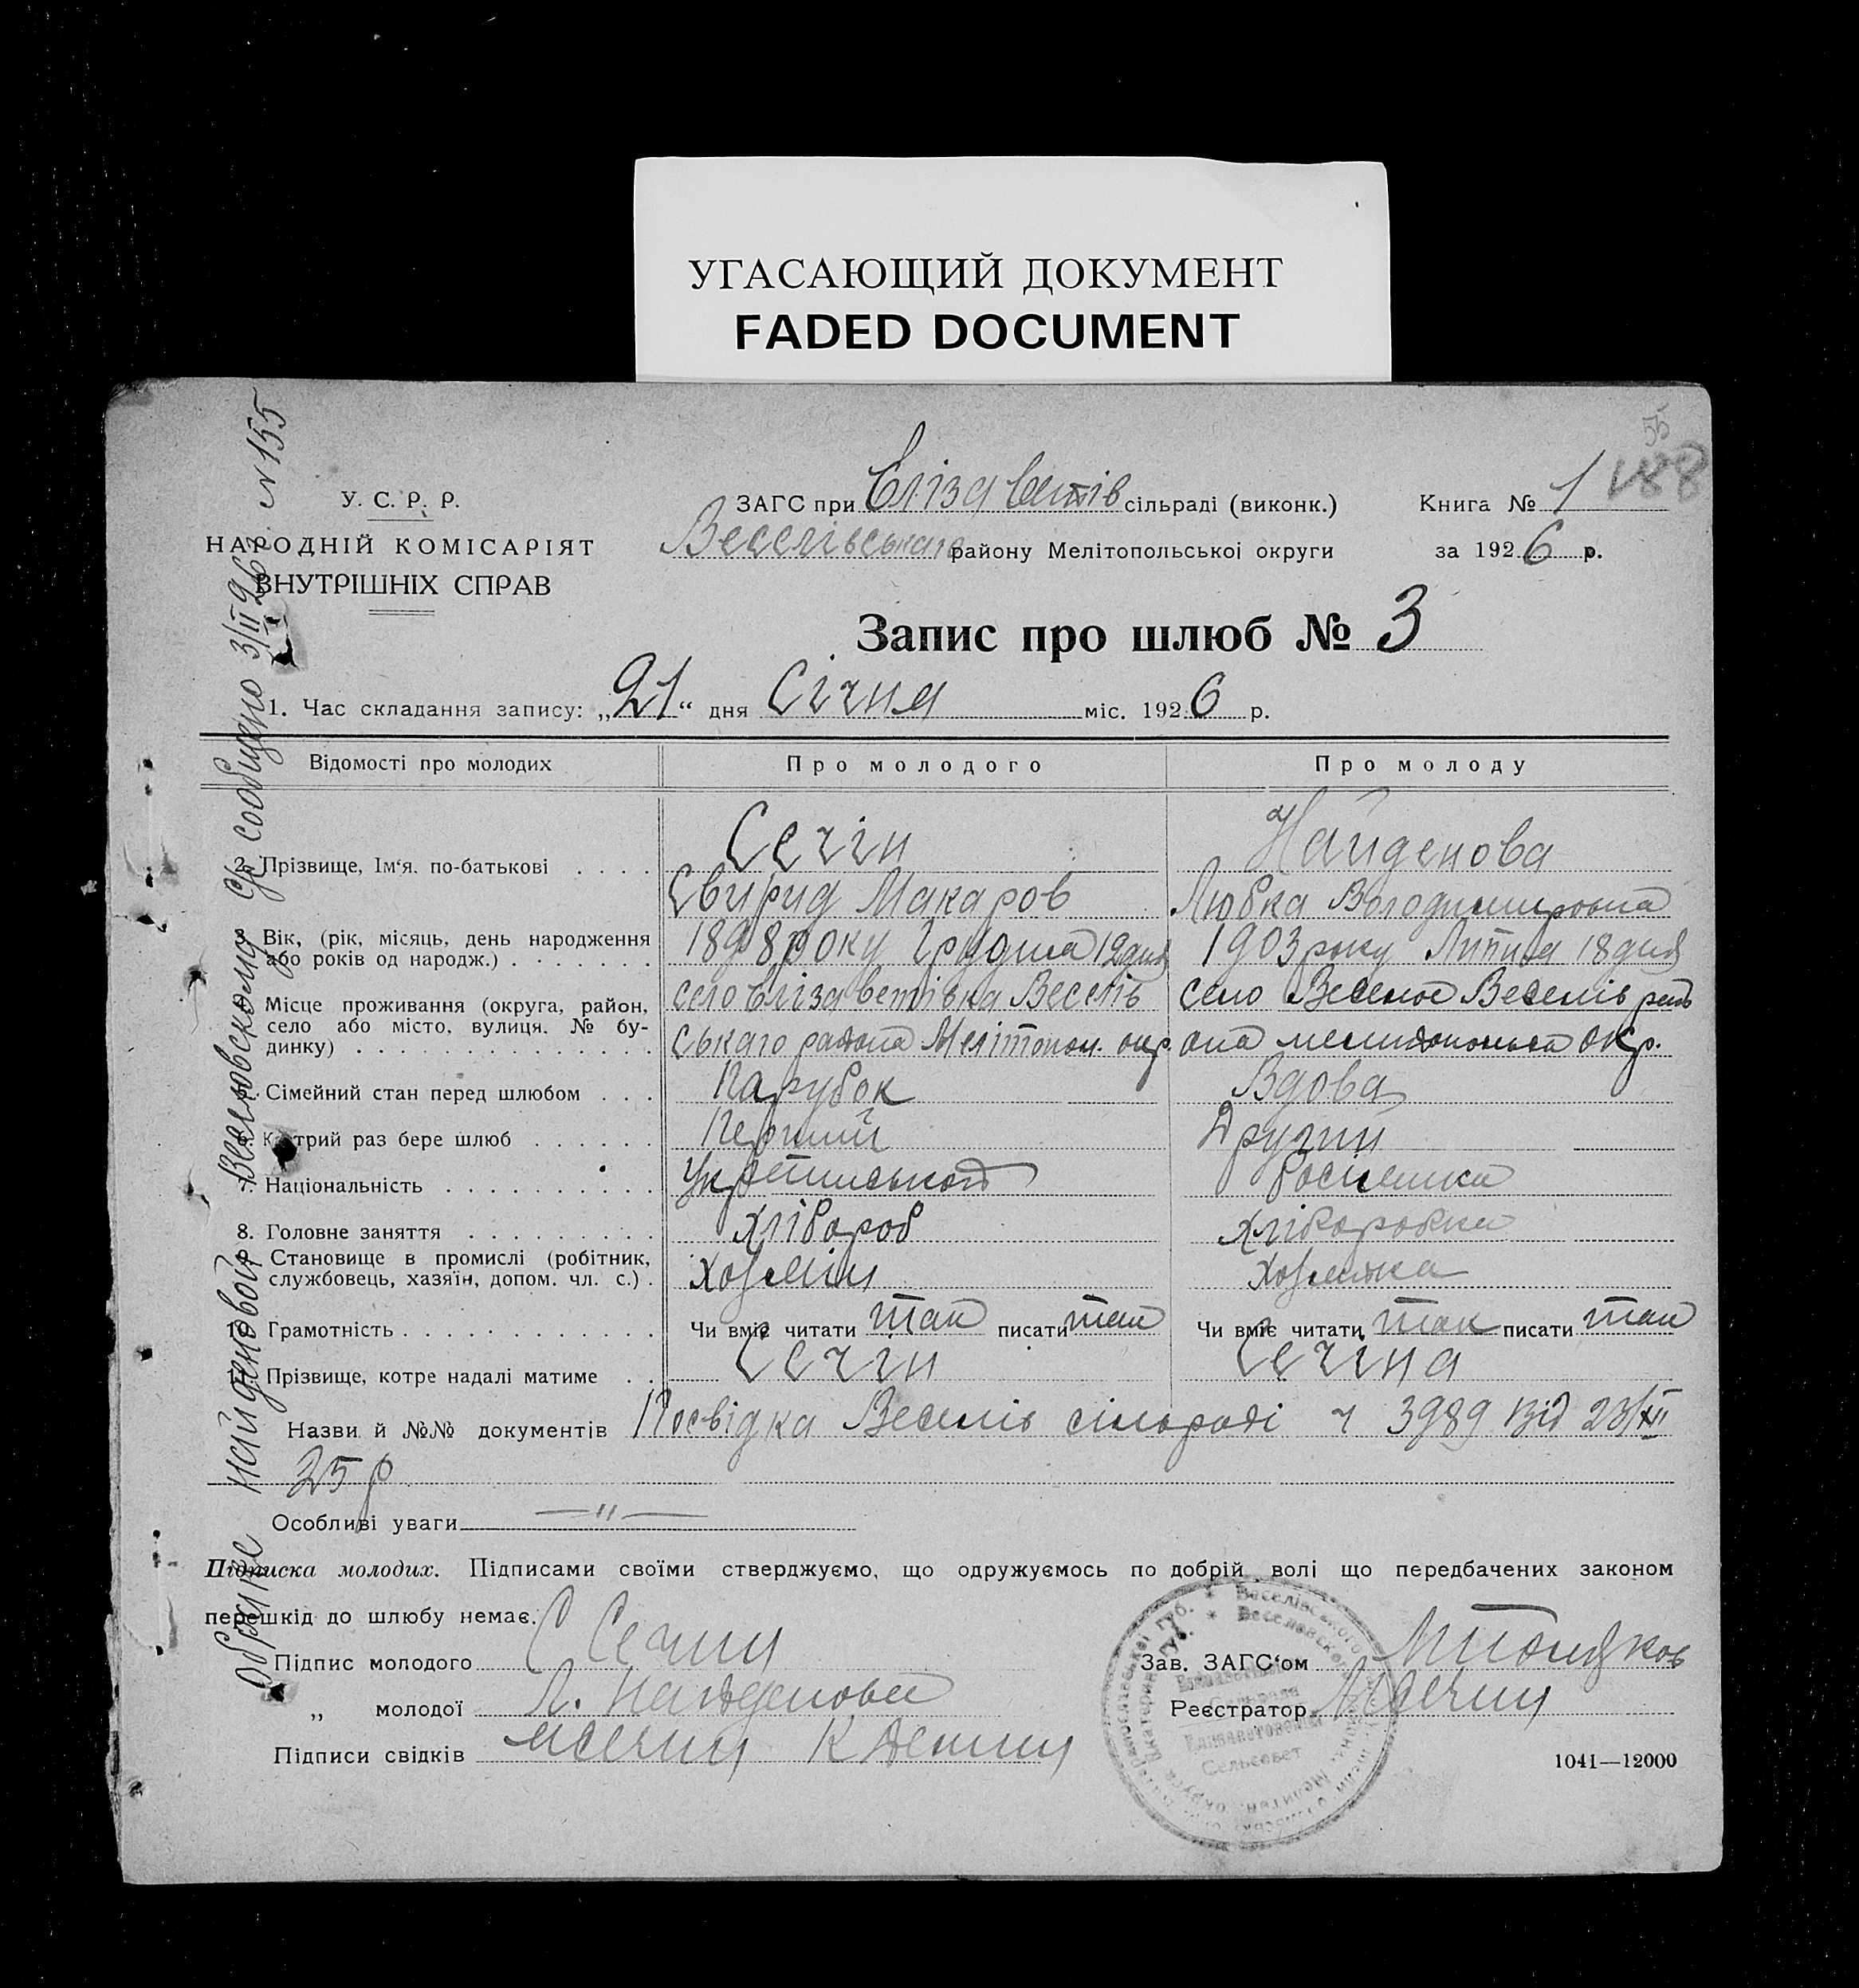 УГАСАЮЩИЙ ДОКУМЕНТ
FADED DOCUMENT
55
188
У. С. Р. Р.
НАРОДНІЙ КОМІСАРІЯТ
ВНУТРІШНІХ СПРАВ
ЗАГС при Єлізаветів сільраді (виконк.)
Веселівського району Мелітопольської округи
Книга № 1
за 1926 р.
Запис про шлюб № 3
1. Час складання запису: „21“ дня Січня міс. 1926 р.
Відомості про молодих
Про молодого
Про молоду
2. Прізвище, Ім‘я. по-батькові . . . .
Сечін
Свирид Макаров
Найденова
Любка Володимировна
Вік, (рік, місяць, день народження
або років од народж.) . . . . . . .
1898 року Грудня 12 дня
1903 року Липня 18 дня
Місце проживання (округа, район,
село або місто, вулиця. № бу-
динку) . . . . . . . . . . . . . .
село Єлізаветівка Веселів
ського района Мелітопол. окр.
село Веселое Веселів рай
она окр.
Сімейний стан перед шлюбом . . .
Парубок
Вдова
6. Котрий раз бере шлюб . . . . . .
Перший
Другий
7. Національність . . . . . . . . . .
Росіянка
8. Головне заняття . . . . . . . . .
Хлібороб
Хліборобка
Становище в промислі (робітник,
службовець, хазяїн, допом. чл. с.) .
Хозяїн
Хозяйка
Грамотність . . . . . . . . . . . .
Чи вміє читати так писати так
Чи вміє читати так писати так
Прізвище, котре надалі матиме . .
Сечін
Сечіна
Назви й №№ документів Посвідка Веселів сільраді ч 3989 від 23/XII
25 р
Особливі уваги — " —
Підписка молодих. Підписами своїми стверджуємо, що одружуємось по добрій волі що передбачених законом
перешкід до шлюбу немає.
Підпис молодого С Сечин
„ молодої Л. Найденова
Підписи свідків МСечин К
Зав. ЗАГС‘ом
Реєстратор МСечин
1041—12000
О браке Найденовой Веселовскому с/с сообщено 3/II 26 г. № 155
Сельсовет